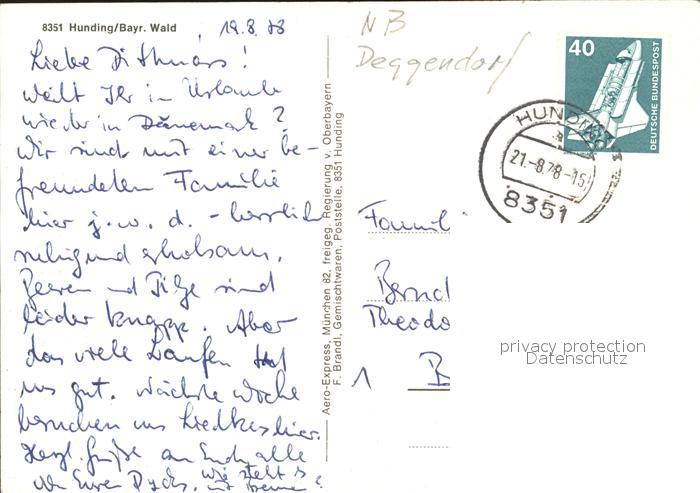 8351 Hunding/Bayr. Wald
19.8.78
Liebe Dithmars!
Weilt Ihr in Urlaub
wieder in Dänemark?
Wir sind mit einer be-
freundeten Familie
hier j.w.d. - herrlich
ruhig und erholsam.
Beeren und Pilze sind
leider knapp. Aber
das viele Laufen tut
uns gut. Nächste Woche
besuchen uns Liedkes hier.
Herzl. Grüße an Euch alle
von Euren
wie steht's
mit
NB
Deggendorf
40
DEUTSCHE BUNDESPOST
HUNDING
21.-8.78-15
8351
Aero-Express, München 82, freigeg. Regierung v. Oberbayern
F. Brandl, Gemischtwaren, Poststelle, 8351 Hunding
Famil
Bernd
Theodo
1
B
privacy protection
Datenschutz